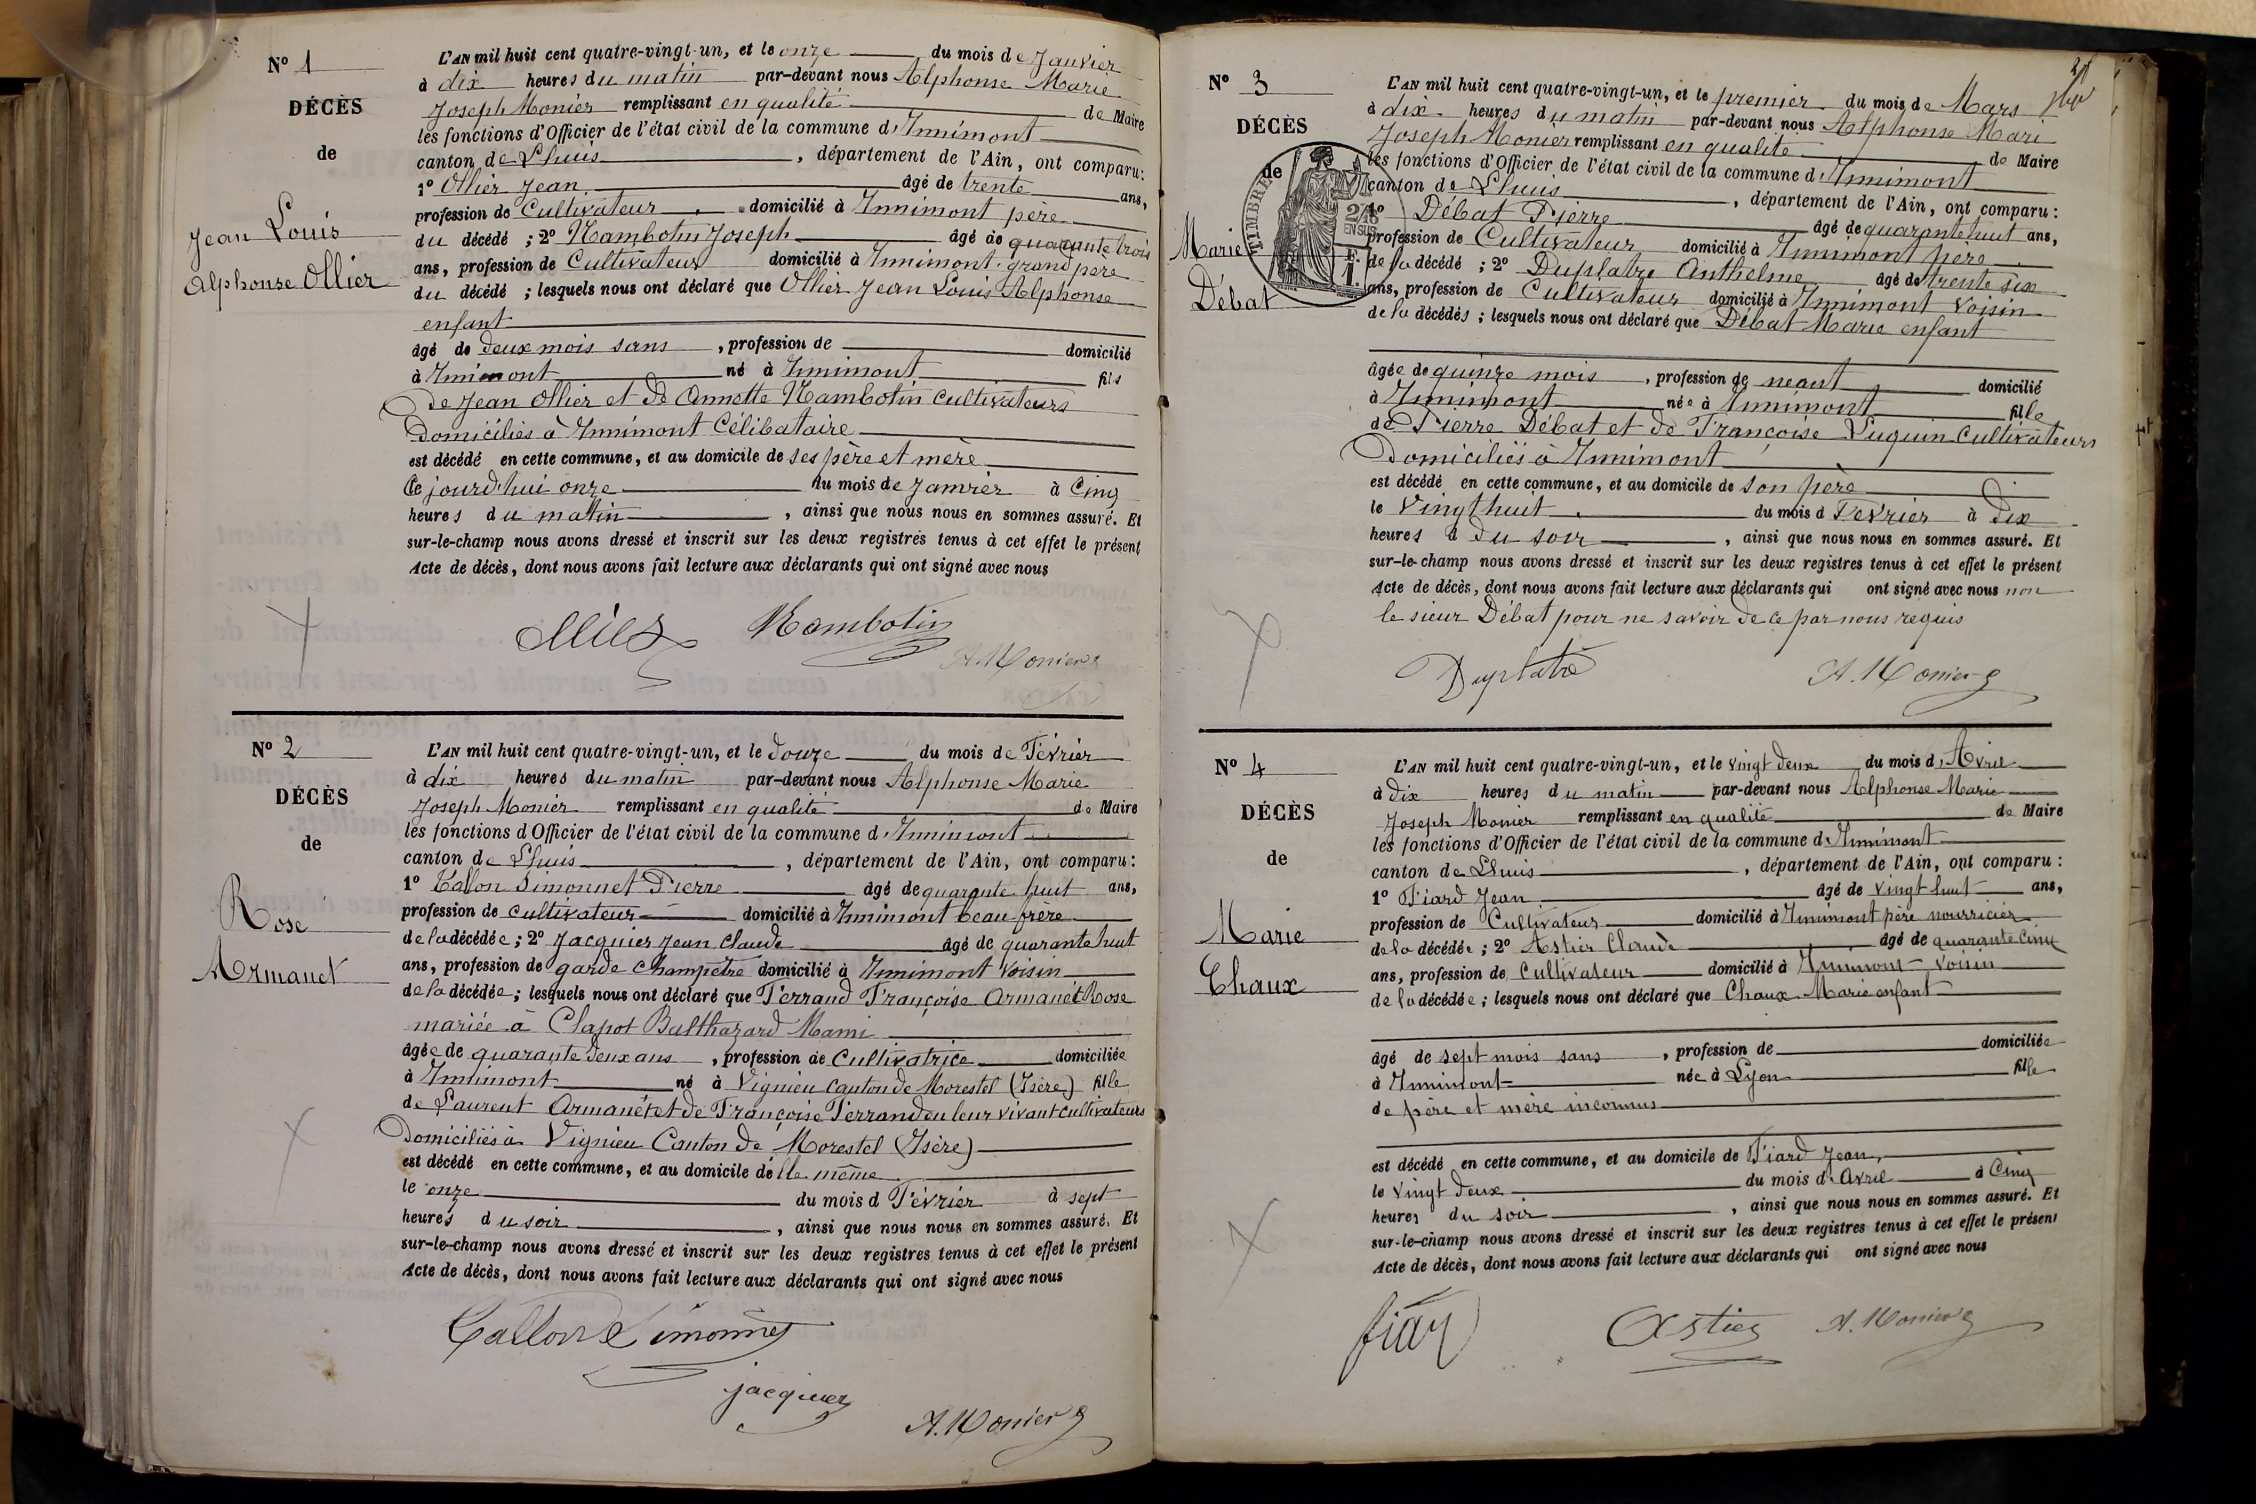 Nº 1
DÉCÈS
de
Jean Louis
Alphonse Ollier
L'AN mil huit cent quatre-vingt-un, et le onze du mois de Janvier
à dix heures du matin par-devant nous Alphonse Marie
Joseph Monier remplissant en qualité de Maire
les fonctions d'Officier de l'état civil de la commune d'Innimont
canton de Lhuis, département de l'Ain, ont comparu:
1º Ollier Jean âgé de trente ans,
profession de Cultivateur domicilié à Innimont père
du décédé ; 2º Nambotin Joseph âgé de quarante trois
ans, profession de Cultivateur domicilié à Innimont grand père
du décédé ; lesquels nous ont déclaré que Ollier Jean Louis Alphonse
enfant
âgé de deux mois sans , profession de domicilié
à Innimont né à Innimont fils
de Jean Ollier et de Annette Nambotin cultivateurs
Domiciliés à Innimont Célibataire
est décédé en cette commune, et au domicile de ses père et mère
Ce jourd'hui onze du mois de Janvier à Cinq
heures du matin , ainsi que nous nous en sommes assuré. Et
sur-le-champ nous avons dressé et inscrit sur les deux registres tenus à cet effet le présent
Acte de décès, dont nous avons fait lecture aux déclarants qui ont signé avec nous
Nambotin
A. Monier
Nº 2
DÉCÈS
de
Rose
Armanet
L'AN mil huit cent quatre-vingt-un, et le douze du mois de Février
à dix heures du matin par-devant nous Alphonse Marie
Joseph Monier remplissant en qualité de Maire
les fonctions d'Officier de l'état civil de la commune d'Innimont
canton de Lhuis , département de l'Ain, ont comparu:
1º Callon Simonnet Pierre âgé de quarante huit ans,
profession de cultivateur domicilié à Innimont beau frère
de la décédée ; 2º Jacquier Jean Claude âgé de quarante huit
ans, profession de garde champêtre domicilié à Innimont voisin
de la décédée ; lesquels nous ont déclaré que Perrand Françoise Armanet Rose
mariée à Clapot Balthazard Mami
âgée de quarante deux ans , profession de Cultivatrice domiciliée
à Innimont né à Vignieu canton de Morestel (Isère) fille
de Laurent Armanet et de Françoise Perrand en leur vivant cultivateurs
Domiciliés à Vignieu Canton de Morestel (Isère)
est décédé en cette commune, et au domicile d'elle même
le onze du mois d Février à sept
heures du soir , ainsi que nous nous en sommes assuré. Et
sur-le-champ nous avons dressé et inscrit sur les deux registres tenus à cet effet le présent
Acte de décès, dont nous avons fait lecture aux déclarants qui ont signé avec nous
Callon Simonnet
jacquier
A. Monier
Nº 3
DÉCÈS
de
Marie
Débat
TIMBRE
EN SUS
L'AN mil huit cent quatre-vingt-un, et le premier du mois de Mars
à dix heures du matin par-devant nous Alphonse Mari
Joseph Monier remplissant en qualité de Maire
les fonctions d'Officier de l'état civil de la commune d'Innimont
canton de Lhuis , département de l'Ain, ont comparu :
1º Débat Pierre âgé de quarante huit ans,
profession de Cultivateur domicilié à Innimont père
de la décédé ; 2º Duplatre Anthelme âgé de trente six
ans, profession de Cultivateur domicilié à Innimont voisin
de la décédés ; lesquels nous ont déclaré que Débat Marie enfant
âgée de quinze mois , profession de neant domicilié
à Innimont née à Innimont fille
de Pierre Débat et de Françoise Luquin cultivateurs
Domiciliés à Innimont
est décédé en cette commune, et au domicile de son père
le Vingt huit du mois d Février à Dix
heures d du soir , ainsi que nous nous en sommes assuré. Et
sur-le-champ nous avons dressé et inscrit sur les deux registres tenus à cet effet le présent
Acte de décès, dont nous avons fait lecture aux déclarants qui ont signé avec nous non
le sieur Débat pour ne savoir de ce par nous requis
Duplatre
A. Monier
Nº 4
DÉCÈS
de
Marie
Chaux
L'AN mil huit cent quatre-vingt-un, et le vingt deux du mois d'Avril
à dix heures du matin par-devant nous Alphonse Marie
Joseph Monier remplissant en qualité de Maire
les fonctions d'Officier de l'état civil de la commune d'Innimont
canton de Lhuis , département de l'Ain, ont comparu :
1º Fiard Jean âgé de vingt huit ans,
profession de Cultivateur domicilié à Innimont père nourricier
de la décédée ; 2º Astier Claude âgé de quarante cinq
ans, profession de Cultivateur domicilié à Innimont voisin
de la décédée ; lesquels nous ont déclaré que Chaux Marie enfant
âgé de sept mois sans , profession de domiciliée
à Innimont née à Lyon fille
de père et mère inconnus
est décédé en cette commune, et au domicile de Fiard Jean
le vingt deux du mois d'Avril à Cinq
heures du soir , ainsi que nous nous en sommes assuré. Et
sur-le-champ nous avons dressé et inscrit sur les deux registres tenus à cet effet le présent
Acte de décès, dont nous avons fait lecture aux déclarants qui ont signé avec nous
Astier
A. Monier